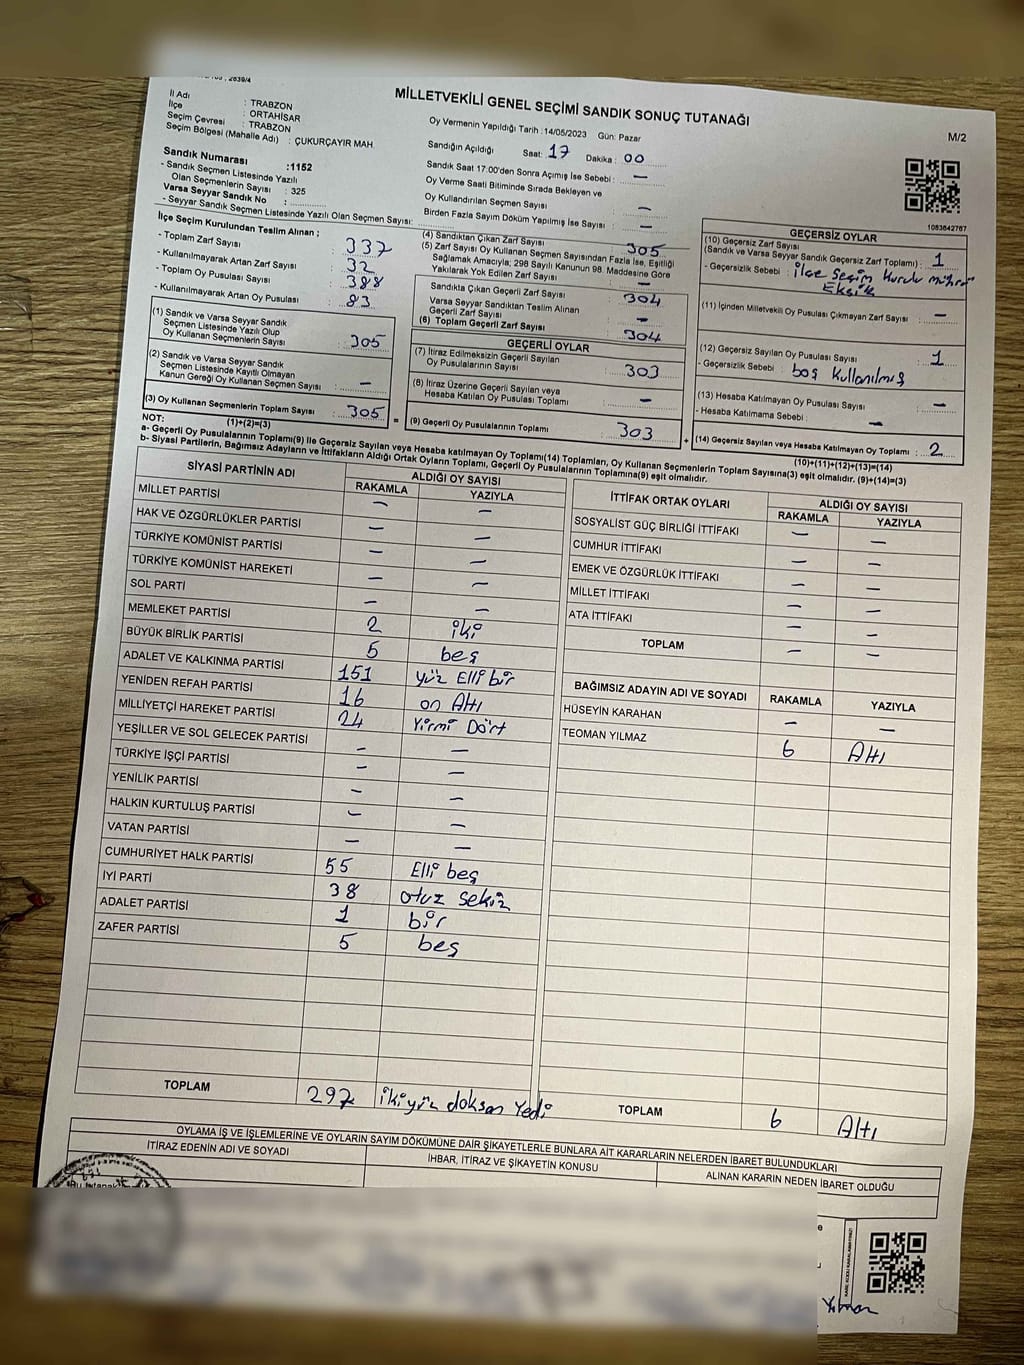 MİLLETVEKİLİ GENEL SEÇİMİ SANDIK SONUÇ TUTANAĞI
M/2
İl Adı : TRABZON
İlçe : ORTAHİSAR
Seçim Çevresi : TRABZON
Seçim Bölgesi (Mahalle Adı) : ÇUKURÇAYIR MAH.
Sandık Numarası :1152
- Sandık Seçmen Listesinde Yazılı
Olan Seçmenlerin Sayısı : 325
Varsa Seyyar Sandık No :
- Seyyar Sandık Seçmen Listesinde Yazılı Olan Seçmen Sayısı:
Oy Vermenin Yapıldığı Tarih :14/05/2023 Gün: Pazar
Sandığın Açıldığı Saat: 17 Dakika : 00
Sandık Saat 17:00'den Sonra Açımış İse Sebebi : —
Oy Verme Saati Bitiminde Sırada Bekleyen ve
Oy Kullandırılan Seçmen Sayısı : —
Birden Fazla Sayım Döküm Yapılmış İse Sayısı : —
1083642767
İlçe Seçim Kurulundan Teslim Alınan ;
- Toplam Zarf Sayısı : 337
- Kullanılmayarak Artan Zarf Sayısı : 32
- Toplam Oy Pusulası Sayısı : 388
- Kullanılmayarak Artan Oy Pusulası : 83
(1) Sandık ve Varsa Seyyar Sandık
Seçmen Listesinde Yazılı Olup
Oy Kullanan Seçmenlerin Sayısı : 305
(2) Sandık ve Varsa Seyyar Sandık
Seçmen Listesinde Kayıtlı Olmayan
Kanun Gereği Oy Kullanan Seçmen Sayısı : —
(3) Oy Kullanan Seçmenlerin Toplam Sayısı : 305
(1)+(2)=(3)
(4) Sandıktan Çıkan Zarf Sayısı : 305
(5) Zarf Sayısı Oy Kullanan Seçmen Sayısından Fazla İse, Eşitliği
Sağlamak Amacıyla; 298 Sayılı Kanunun 98. Maddesine Göre
Yakılarak Yok Edilen Zarf Sayısı : —
Sandıkta Çıkan Geçerli Zarf Sayısı : 304
Varsa Seyyar Sandıktan Teslim Alınan
Geçerli Zarf Sayısı : —
(6) Toplam Geçerli Zarf Sayısı : 304
GEÇERLİ OYLAR
(7) İtiraz Edilmeksizin Geçerli Sayılan
Oy Pusulalarının Sayısı : 303
(8) İtiraz Üzerine Geçerli Sayılan veya
Hesaba Katılan Oy Pusulası Toplamı : —
= (9) Geçerli Oy Pusulalarının Toplamı : 303
GEÇERSİZ OYLAR
(10) Geçersiz Zarf Sayısı
(Sandık ve Varsa Seyyar Sandık Geçersiz Zarf Toplamı) : 1
- Geçersizlik Sebebi : ilçe Seçim Kurulu mührü
Eksik
(11) İçinden Milletvekili Oy Pusulası Çıkmayan Zarf Sayısı : —
(12) Geçersiz Sayılan Oy Pusulası Sayısı : 1
- Geçersizlik Sebebi : boş kullanılmış
(13) Hesaba Katılmayan Oy Pusulası Sayısı : —
- Hesaba Katılmama Sebebi : —
+ (14) Geçersiz Sayılan veya Hesaba Katılmayan Oy Toplamı : 2
(10)+(11)+(12)+(13)=(14)
NOT:
a- Geçerli Oy Pusulalarının Toplamı(9) ile Geçersiz Sayılan veya Hesaba katılmayan Oy Toplamı(14) Toplamları, Oy Kullanan Seçmenlerin Toplam Sayısına(3) eşit olmalıdır. (9)+(14)=(3)
b- Siyasi Partilerin, Bağımsız Adayların ve İttifakların Aldığı Ortak Oyların Toplamı, Geçerli Oy Pusulalarının Toplamına(9) eşit olmalıdır.
SİYASİ PARTİNİN ADI ALDIĞI OY SAYISI
RAKAMLA YAZIYLA
MİLLET PARTİSİ — —
HAK VE ÖZGÜRLÜKLER PARTİSİ — —
TÜRKİYE KOMÜNİST PARTİSİ — —
TÜRKİYE KOMÜNİST HAREKETİ — —
SOL PARTİ — —
MEMLEKET PARTİSİ 2 iki
BÜYÜK BİRLİK PARTİSİ 5 beş
ADALET VE KALKINMA PARTİSİ 151 yüz Elli bir
YENİDEN REFAH PARTİSİ 16 on Altı
MİLLİYETÇİ HAREKET PARTİSİ 24 Yirmi Dört
YEŞİLLER VE SOL GELECEK PARTİSİ — —
TÜRKİYE İŞÇİ PARTİSİ — —
YENİLİK PARTİSİ — —
HALKIN KURTULUŞ PARTİSİ — —
VATAN PARTİSİ — —
CUMHURİYET HALK PARTİSİ 55 Elli beş
İYİ PARTİ 38 otuz sekiz
ADALET PARTİSİ 1 bir
ZAFER PARTİSİ 5 beş
TOPLAM 297 ikiyüz doksan Yedi
İTTİFAK ORTAK OYLARI ALDIĞI OY SAYISI
RAKAMLA YAZIYLA
SOSYALİST GÜÇ BİRLİĞİ İTTİFAKI — —
CUMHUR İTTİFAKI — —
EMEK VE ÖZGÜRLÜK İTTİFAKI — —
MİLLET İTTİFAKI — —
ATA İTTİFAKI — —
TOPLAM — —
BAĞIMSIZ ADAYIN ADI VE SOYADI RAKAMLA YAZIYLA
HÜSEYİN KARAHAN — —
TEOMAN YILMAZ 6 Altı
TOPLAM 6 Altı
OYLAMA İŞ VE İŞLEMLERİNE VE OYLARIN SAYIM DÖKÜMÜNE DAİR ŞİKAYETLERLE BUNLARA AİT KARARLARIN NELERDEN İBARET BULUNDUKLARI
İTİRAZ EDENİN ADI VE SOYADI İHBAR, İTİRAZ VE ŞİKAYETİN KONUSU ALINAN KARARIN NEDEN İBARET OLDUĞU